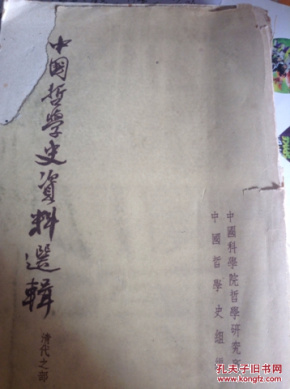 中國哲學史資料選輯
清代之部
中國科學院哲學研究所
中國哲學史組
孔夫子旧书网